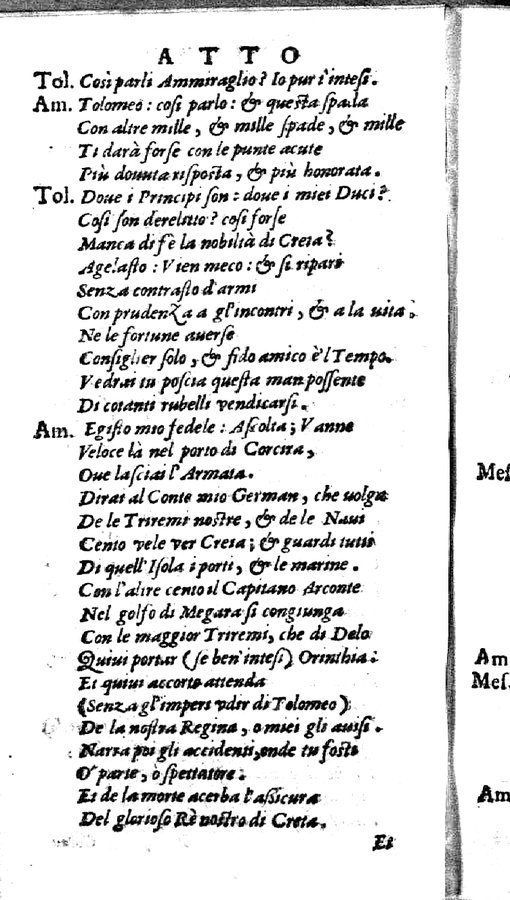 ATTO
Tol. Così parli Ammiraglio? Io pur t'intesi.
Am. Tolomeo: così parlo: & questa spada
Con altre mille, & mille spade, & mille
Ti darà forse con le punte acute
Più douuta risposta, & più honorata.
Tol. Doue i Principi son: doue i miei Duci?
Così son derelitto? così forse
Manca di fè la nobiltà di Creta?
Agelasto: Vien meco: & si ripari
Senza contrasto d'armi
Con prudenza a gl'incontri, & a la uita:
Ne le fortune auerse
Consiglier solo, & fido amico è'l Tempo.
Vedrai tu poscia questa man possente
Di cotanti rubelli vendicarsi.
Am. Egisto mio fedele: Ascolta; Vanne
Veloce là nel porto di Corcira,
Oue lasciai l'Armata.
Dirai al Conte mio German, che uolga
De le Triremi nostre, & de le Naui
Cento vele ver Creta; & guardi tutti
Di quell'Isola i porti, & le marine.
Con l'altre cento il Capitano Arconte
Nel golfo di Megara si congiunga
Con le maggior Triremi, che di Delo
Quiui portar (se ben'intesi) Orinthia:
Et quiui accorto attenda
(Senza gl'imperi vdir di Tolomeo)
De la nostra Regina, o miei gli auisi.
Narra poi gli accidenti, onde tu fosti
O' parte, ò spettatore:
Et de la morte acerba l'assicura
Del glorioso Rè nostro di Creta.
Et
Mes
Am
Mes.
Am